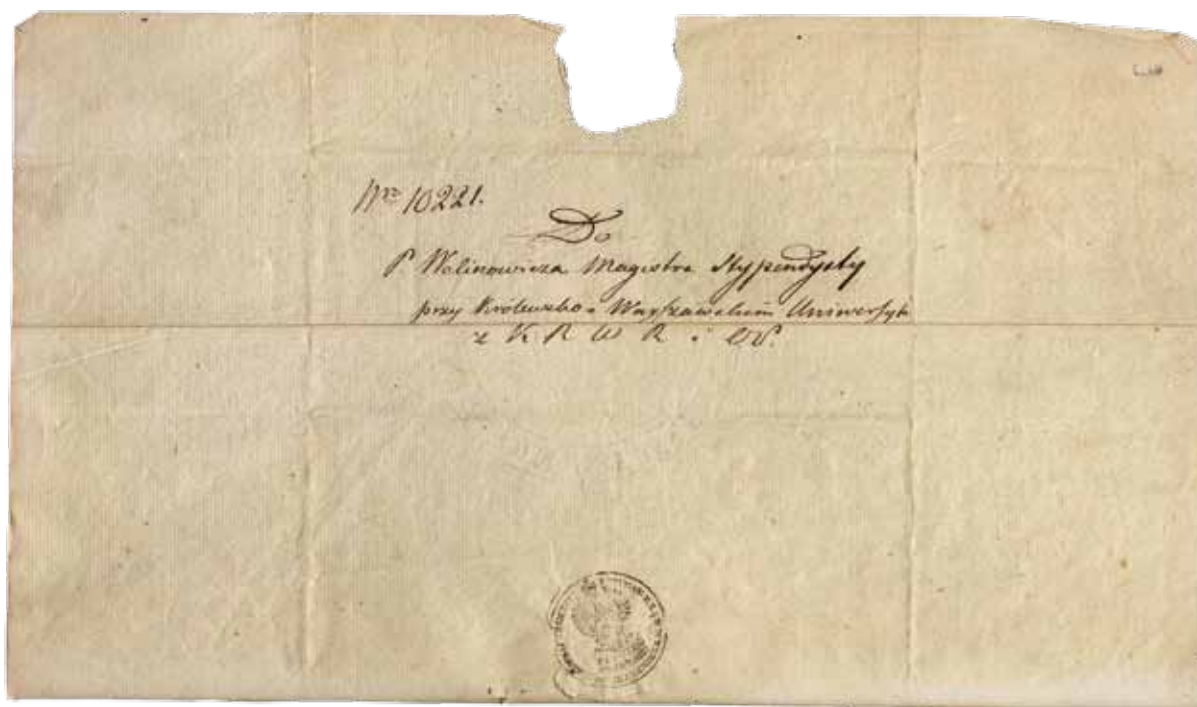 Nro 10221.
Do
P Wolinowicza Magistra Stypendysty
przy Królewsko-Warszawskim Uniwersyt
z K R W R i OP.